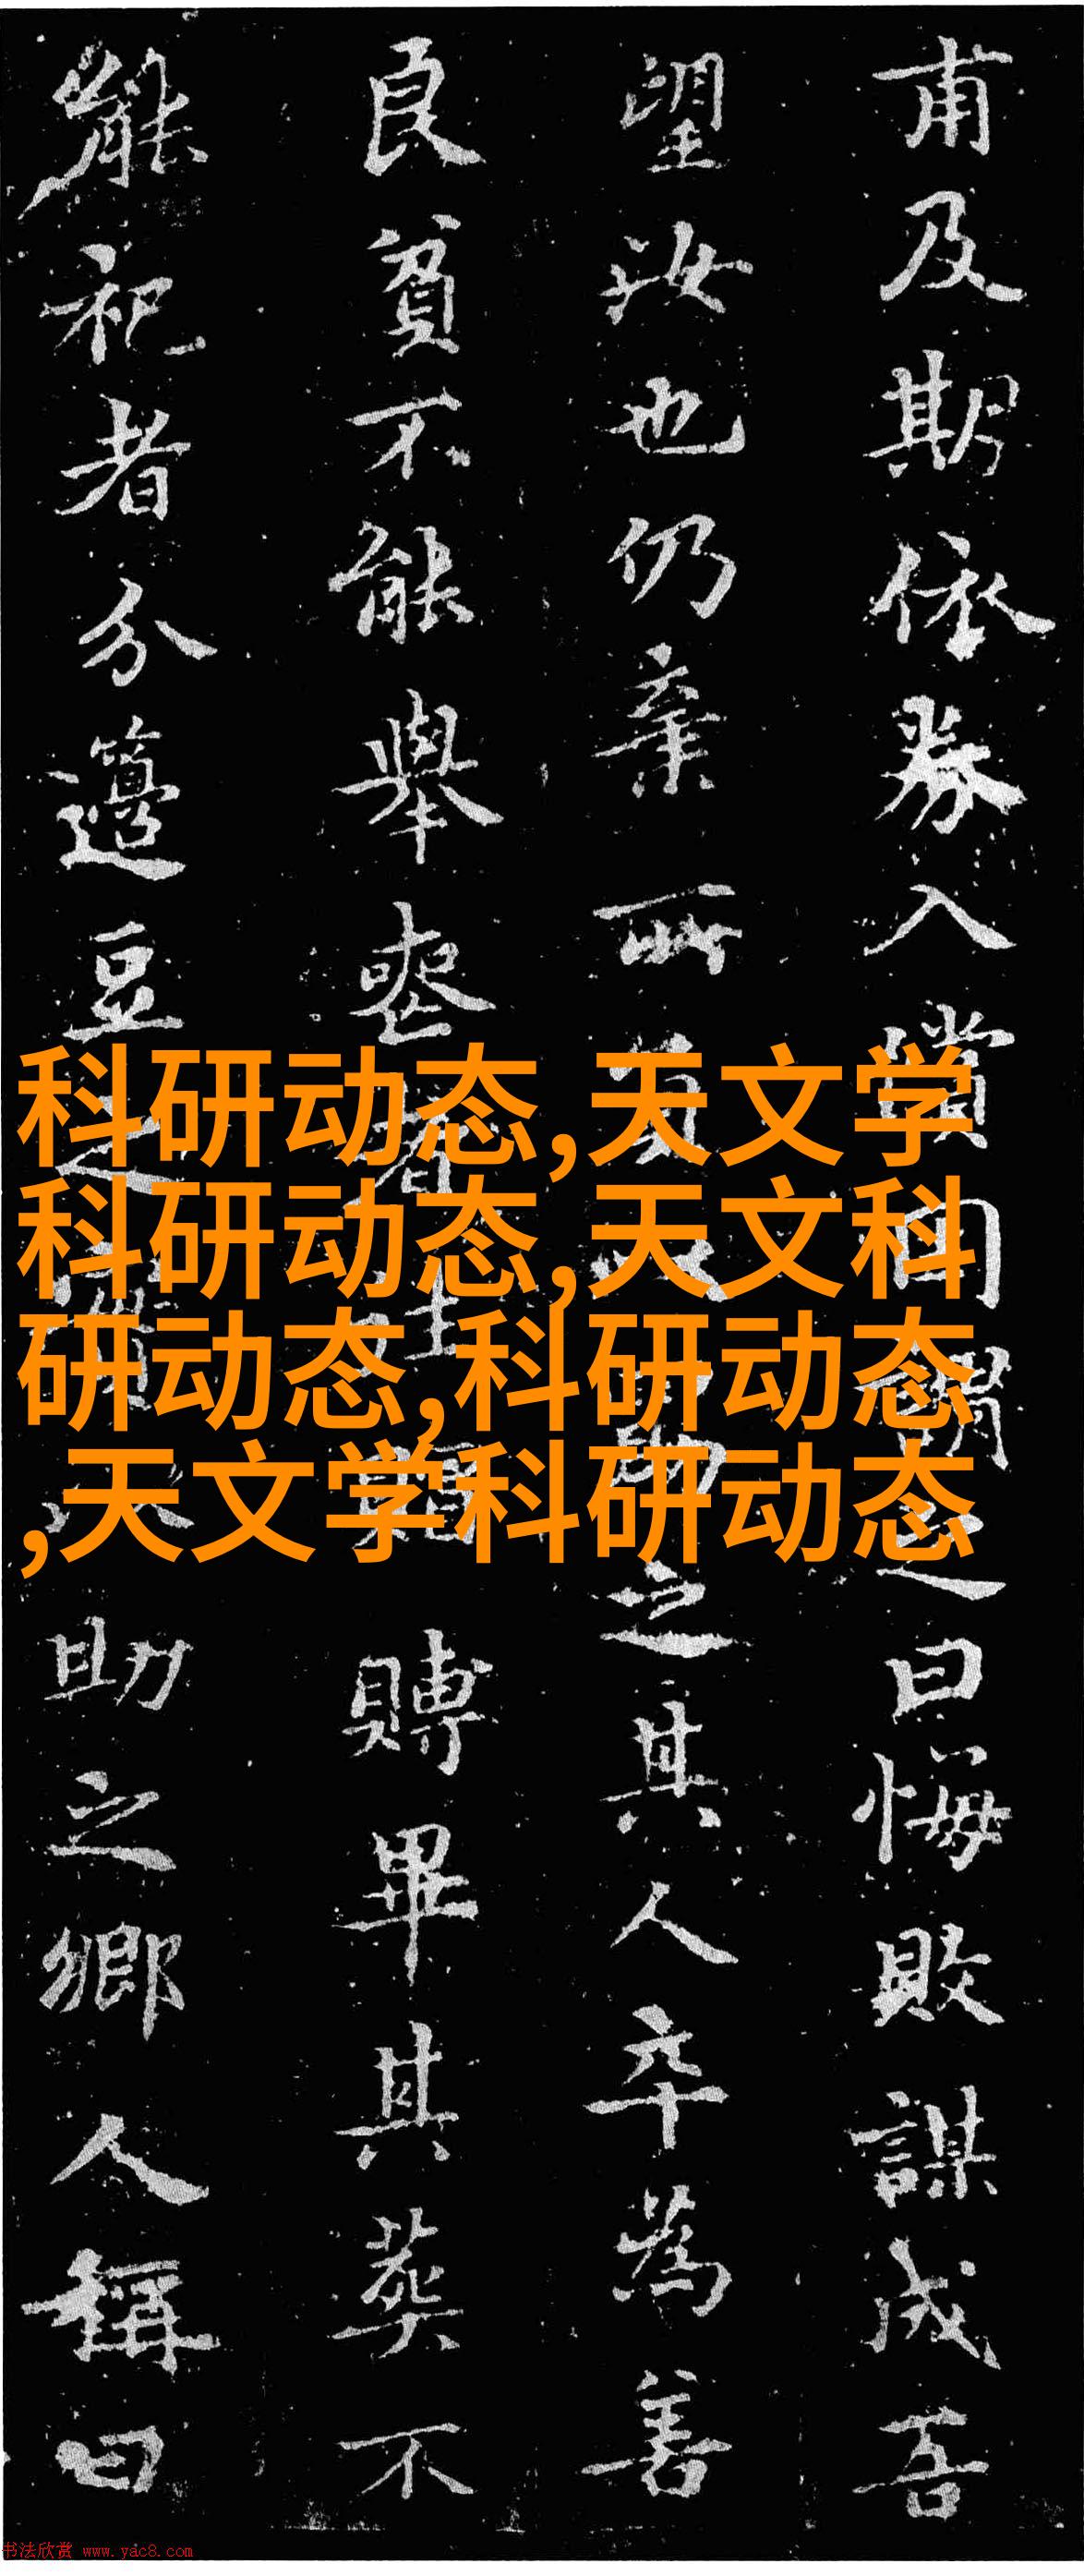 甫及期依券入償問謂之曰悔敗謀成吾
望汝也仍棄所之之其人卒為善
良貧不能舉喪者賻畢其葬不
能祀者分籩豆之助之鄉人稱曰
科研动态,天文学
科研动态,天文科
研动态,科研动态
,天文学科研动态
书法欣赏 www.yac8.com